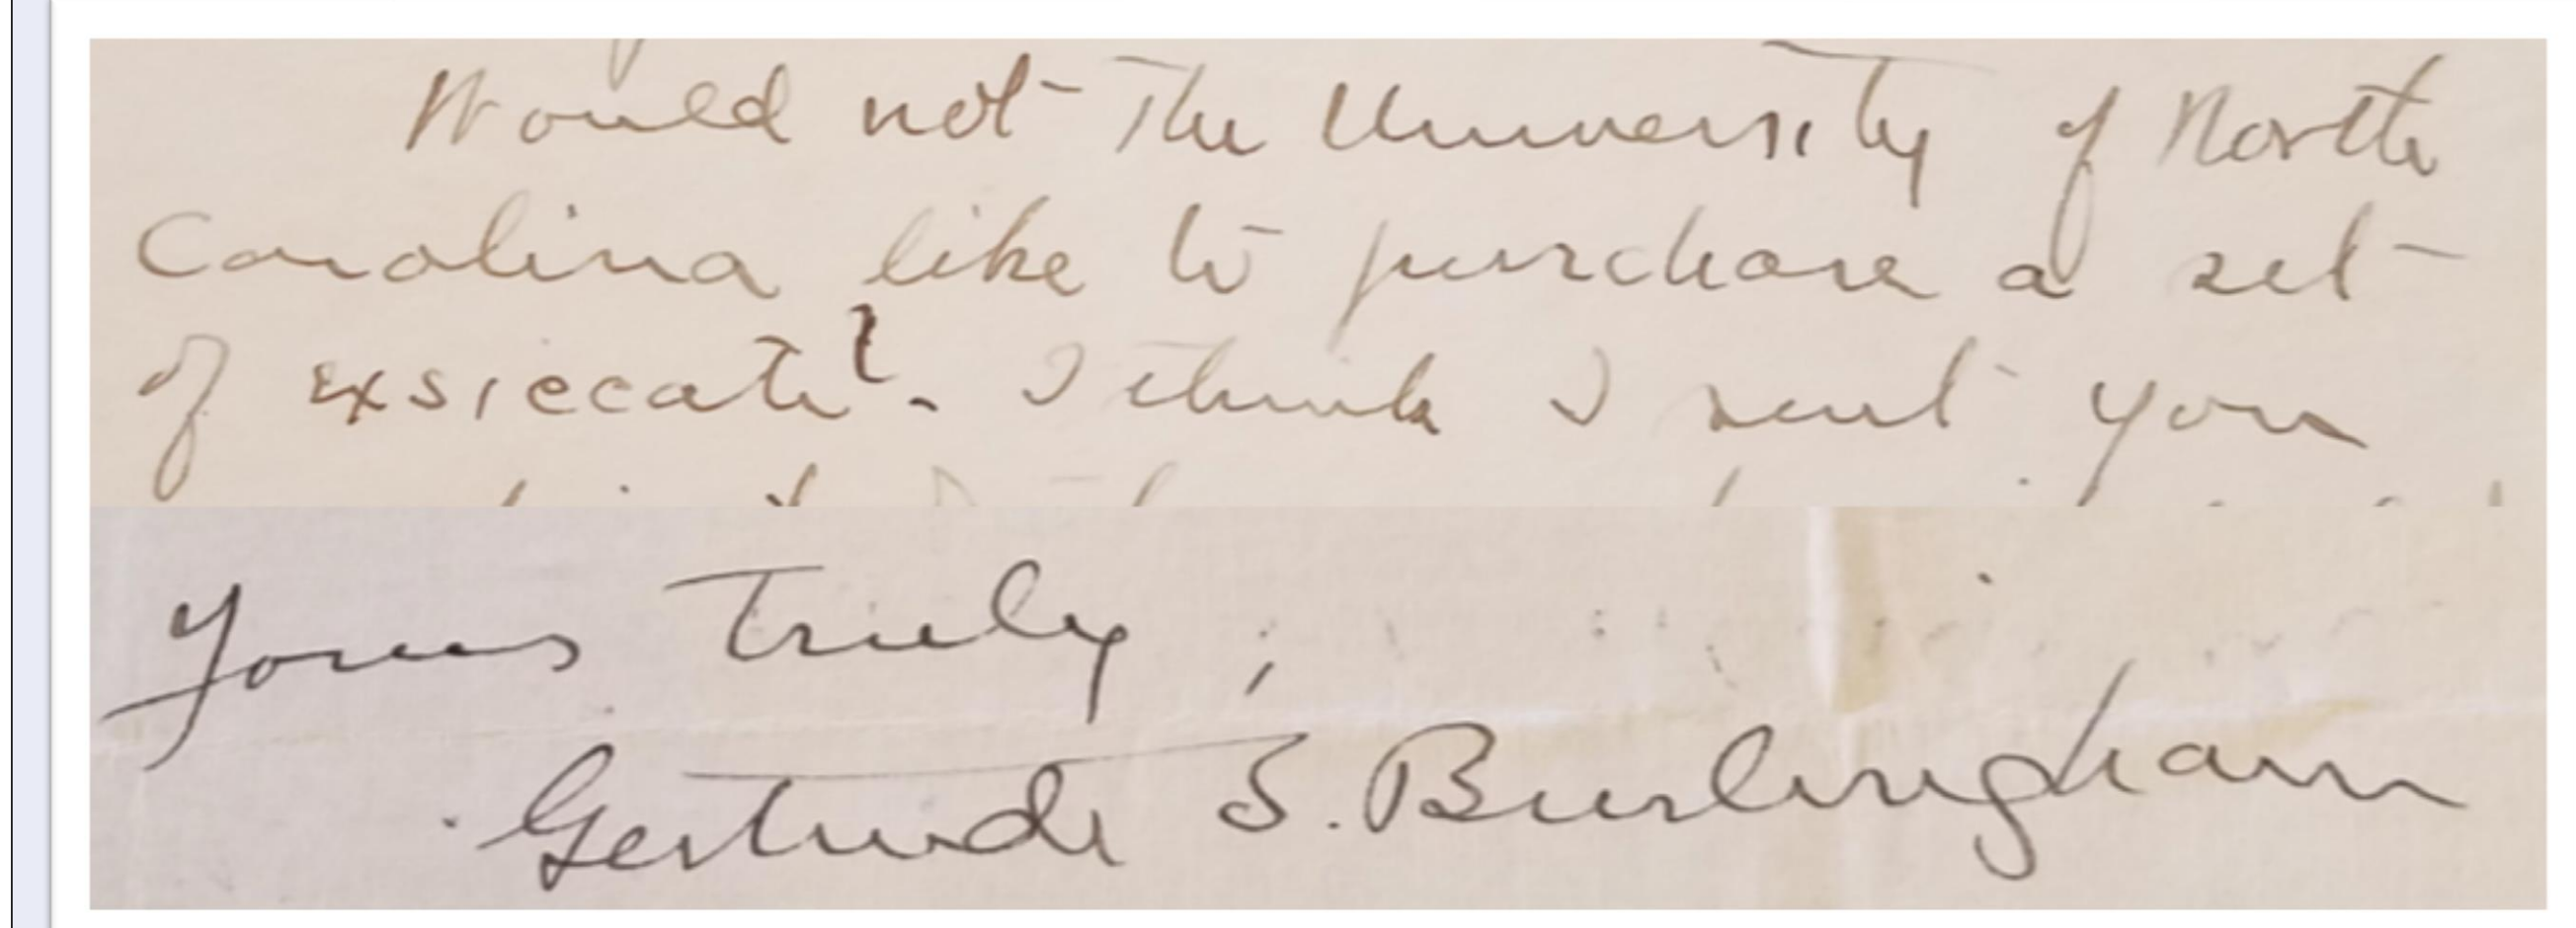 Would not the University of North
Carolina like to purchase a set
of exsiccati?. I think I sent you
Yours truly,
Gertrude S. Burlingham